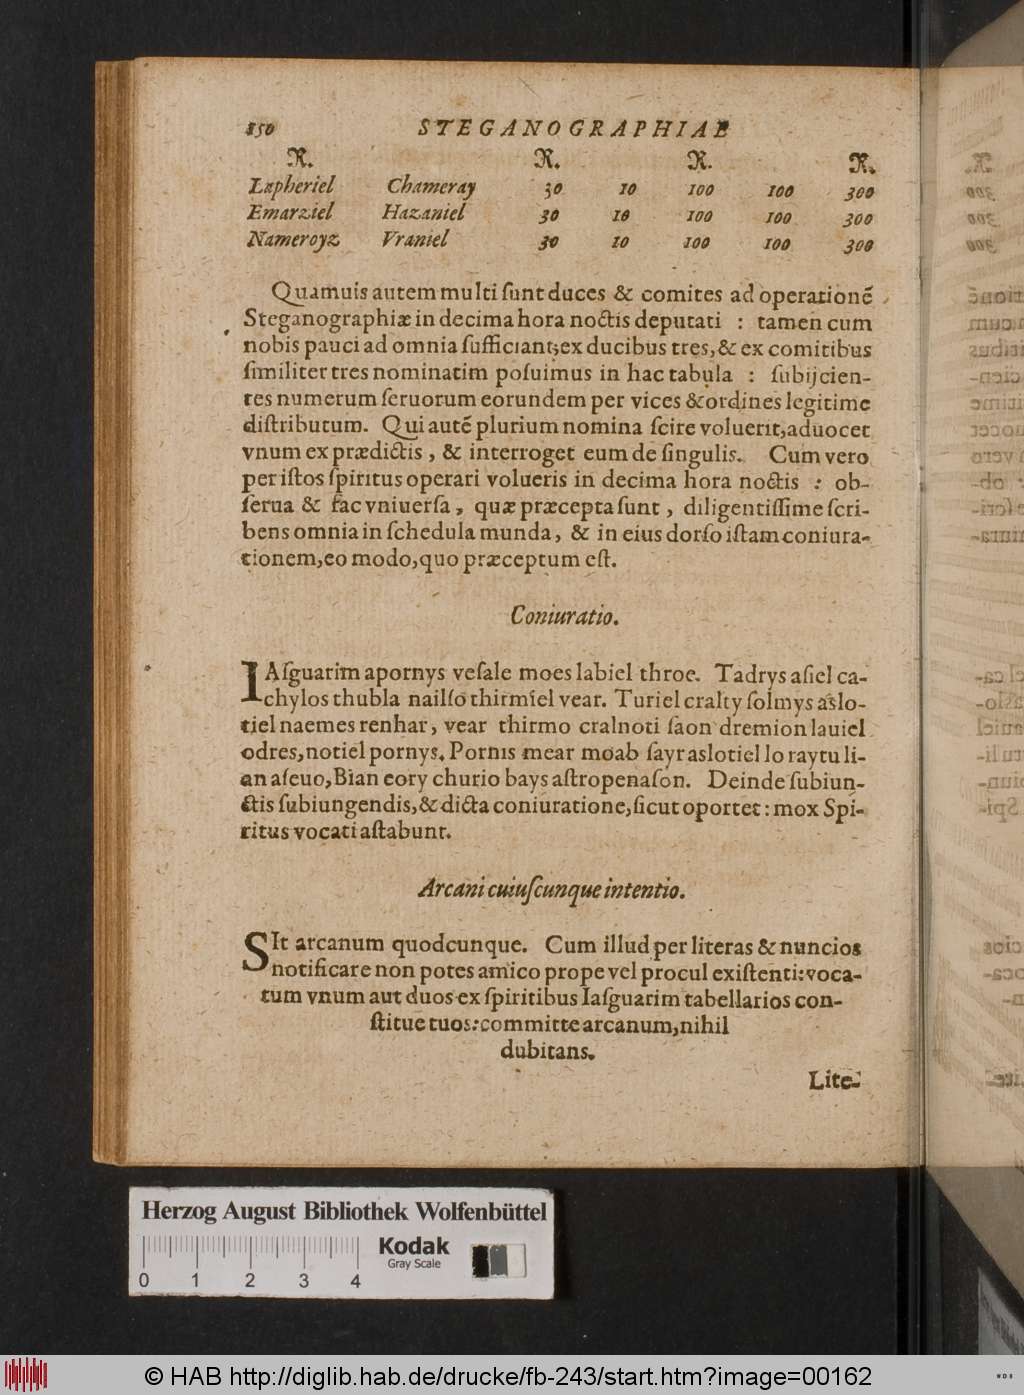 150 STEGANOGRAPHIAE
R. R. R. R.
Lapheriel Chameray 30 10 100 100 300
Emarziel Hazaniel 30 10 100 100 300
Nameroyz Vraniel 30 10 100 100 300
Quamuis autem multi ſunt duces & comites ad operationẽ
Steganographiæ in decima hora noctis deputati : tamen cum
nobis pauci ad omnia ſufficiant; ex ducibus tres, & ex comitibus
ſimiliter tres nominatim poſuimus in hac tabula : ſubijcien-
tes numerum ſeruorum eorundem per vices & ordines legitime
diſtributum. Qui autẽ plurium nomina ſcire voluerit, aduocet
vnum ex prædictis, & interroget eum de ſingulis. Cum vero
per iſtos ſpiritus operari volueris in decima hora noctis : ob-
ſerua & fac vniuerſa, quæ præcepta ſunt, diligentiſſime ſcri-
bens omnia in ſchedula munda, & in eius dorſo iſtam coniura-
tionem, eo modo, quo præceptum eſt.
Coniuratio.
IAſguarim apornys veſale moes labiel throe. Tadrys aſiel ca-
chylos thubla nailſo thirmſel vear. Turiel cralty ſolmys aslo-
tiel naemes renhar, vear thirmo cralnoti ſaon dremion lauiel
odres, notiel pornys. Pornis mear moab ſayr aslotiel lo raytu li-
an aſeuo, Bian eory churio bays aſtropenaſon. Deinde ſubiun-
ctis ſubiungendis, & dicta coniuratione, ſicut oportet: mox Spi-
ritus vocati aſtabunt.
Arcani cuiuſcunque intentio.
SIt arcanum quodcunque. Cum illud per literas & nuncios
notificare non potes amico prope vel procul exiſtenti: voca-
tum vnum aut duos ex ſpiritibus Iaſguarim tabellarios con-
ſtitue tuos: committe arcanum, nihil
dubitans.
Lite-
Herzog August Bibliothek Wolfenbüttel
Kodak
Gray Scale
0 1 2 3 4
© HAB http://diglib.hab.de/drucke/fb-243/start.htm?image=00162